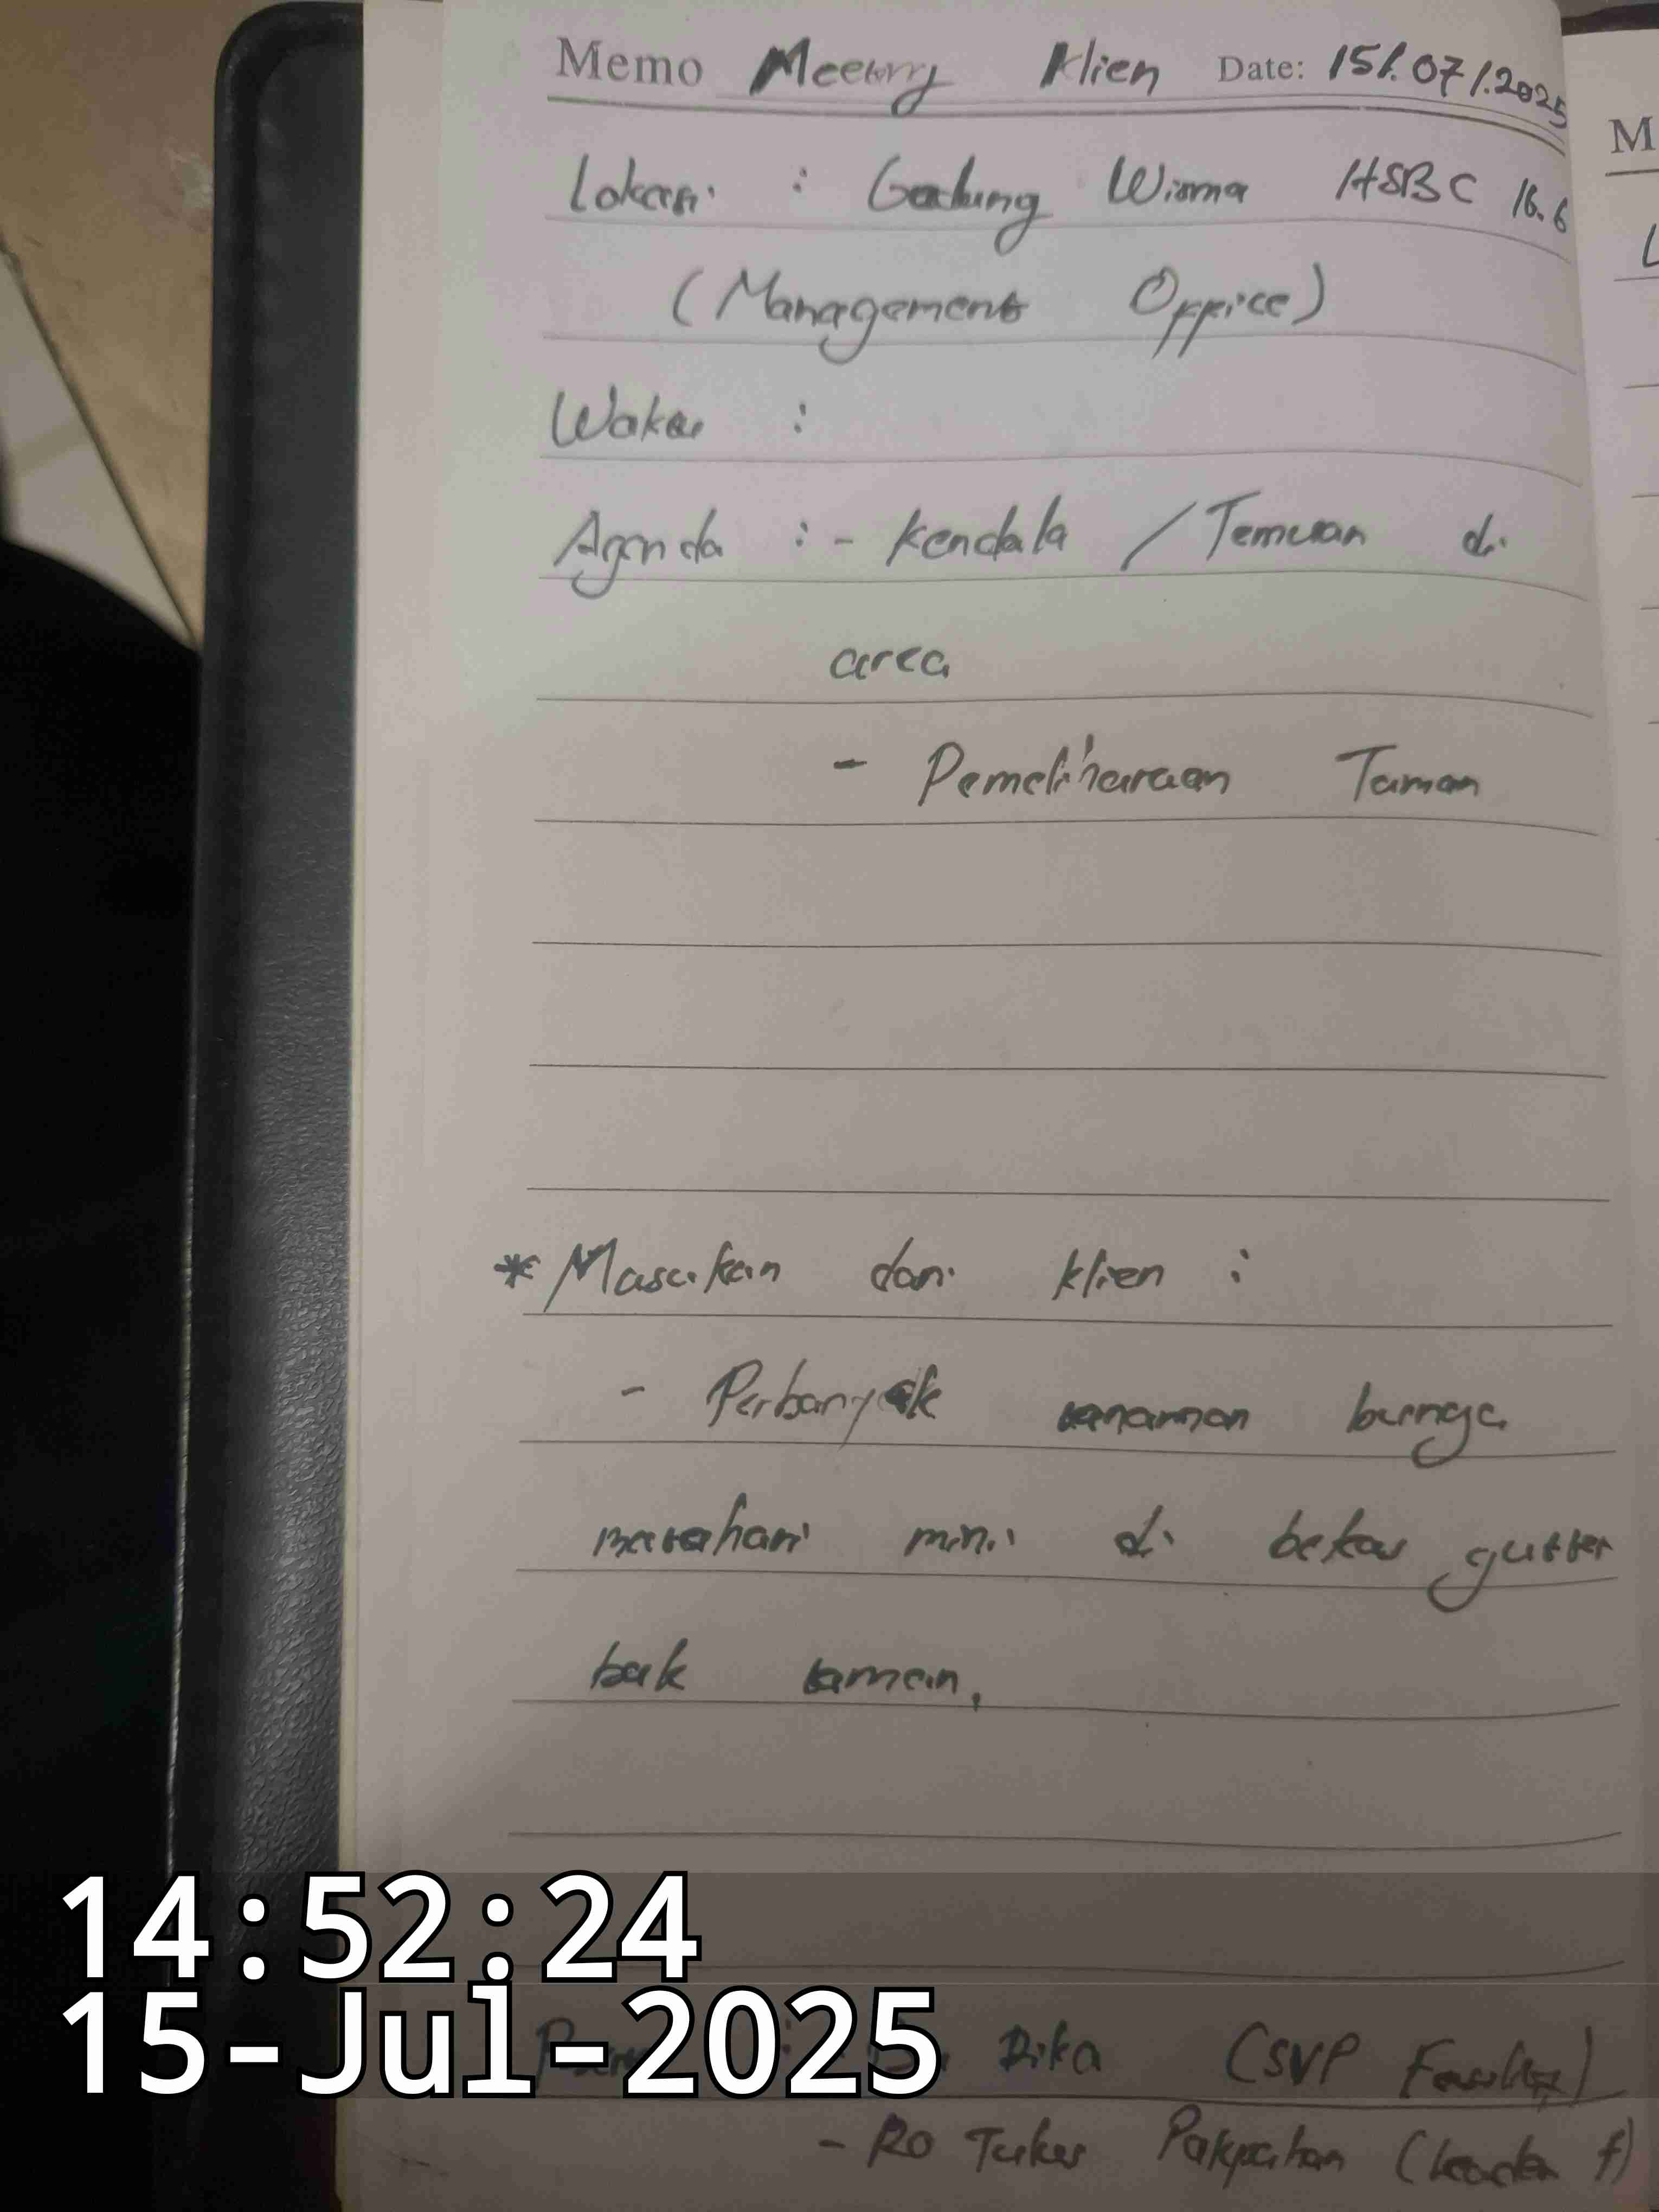 Memo Meeting Klien Date: 15/.07/.2025
M
Lokasi : Gedung Wisma HSBC 16.6
(Management Office)
Waktu :
Agenda : - Kendala / Temuan di
area
- Pemeliharaan Taman
* Masukan dari klien :
- Perbanyak tanaman bunga
matahari mini di bekas gutter
bak taman,
14:52:24
15-Jul-2025
Dika (SVP
- Ro Pakpahan (Leader F)